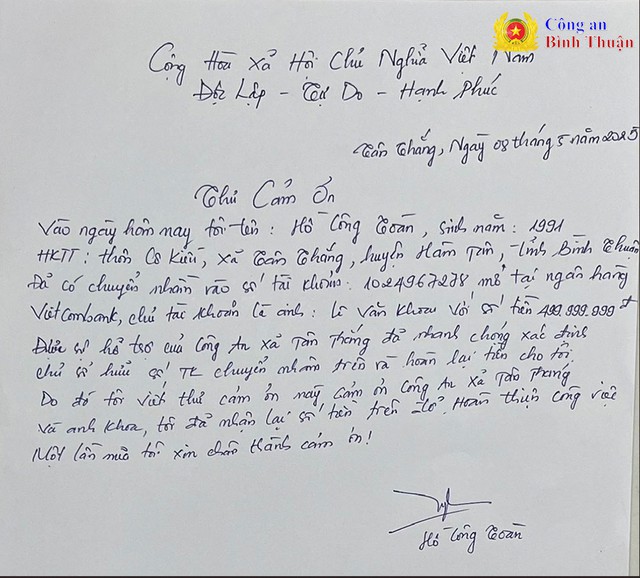 Công an
Bình Thuận
Cộng Hòa Xã Hội Chủ Nghĩa Việt Nam
Độc Lập - Tự Do - Hạnh Phúc
Tân Thắng, Ngày 08 tháng 5 năm 2025
Thư Cảm Ơn
Vào ngày hôm nay tôi tên : Hồ Công Toàn, sinh năm : 1991
HKTT : thôn Cô Kiều, xã Tân Thắng, huyện Hàm Tân, Tỉnh Bình Thuận
Đã có chuyển nhầm vào số tài khoản. 1024967278 mở tại ngân hàng
Vietcombank, chủ tài khoản là anh : Lê Văn Khoa với số tiền 499.999.999đ
Được sự hỗ trợ của Công An xã Tân Thắng đã nhanh chóng xác định
chủ sở hữu số TK chuyển nhầm trên và hoàn lại tiền cho tôi
Do đó tôi viết thư cảm ơn này cảm ơn Công An Xã Tân Thắng
và anh Khoa, tôi đã nhận lại số tiền trên để Hoàn thiện công việc
Một lần nữa tôi xin chân thành cảm ơn !
Hồ Công Toàn